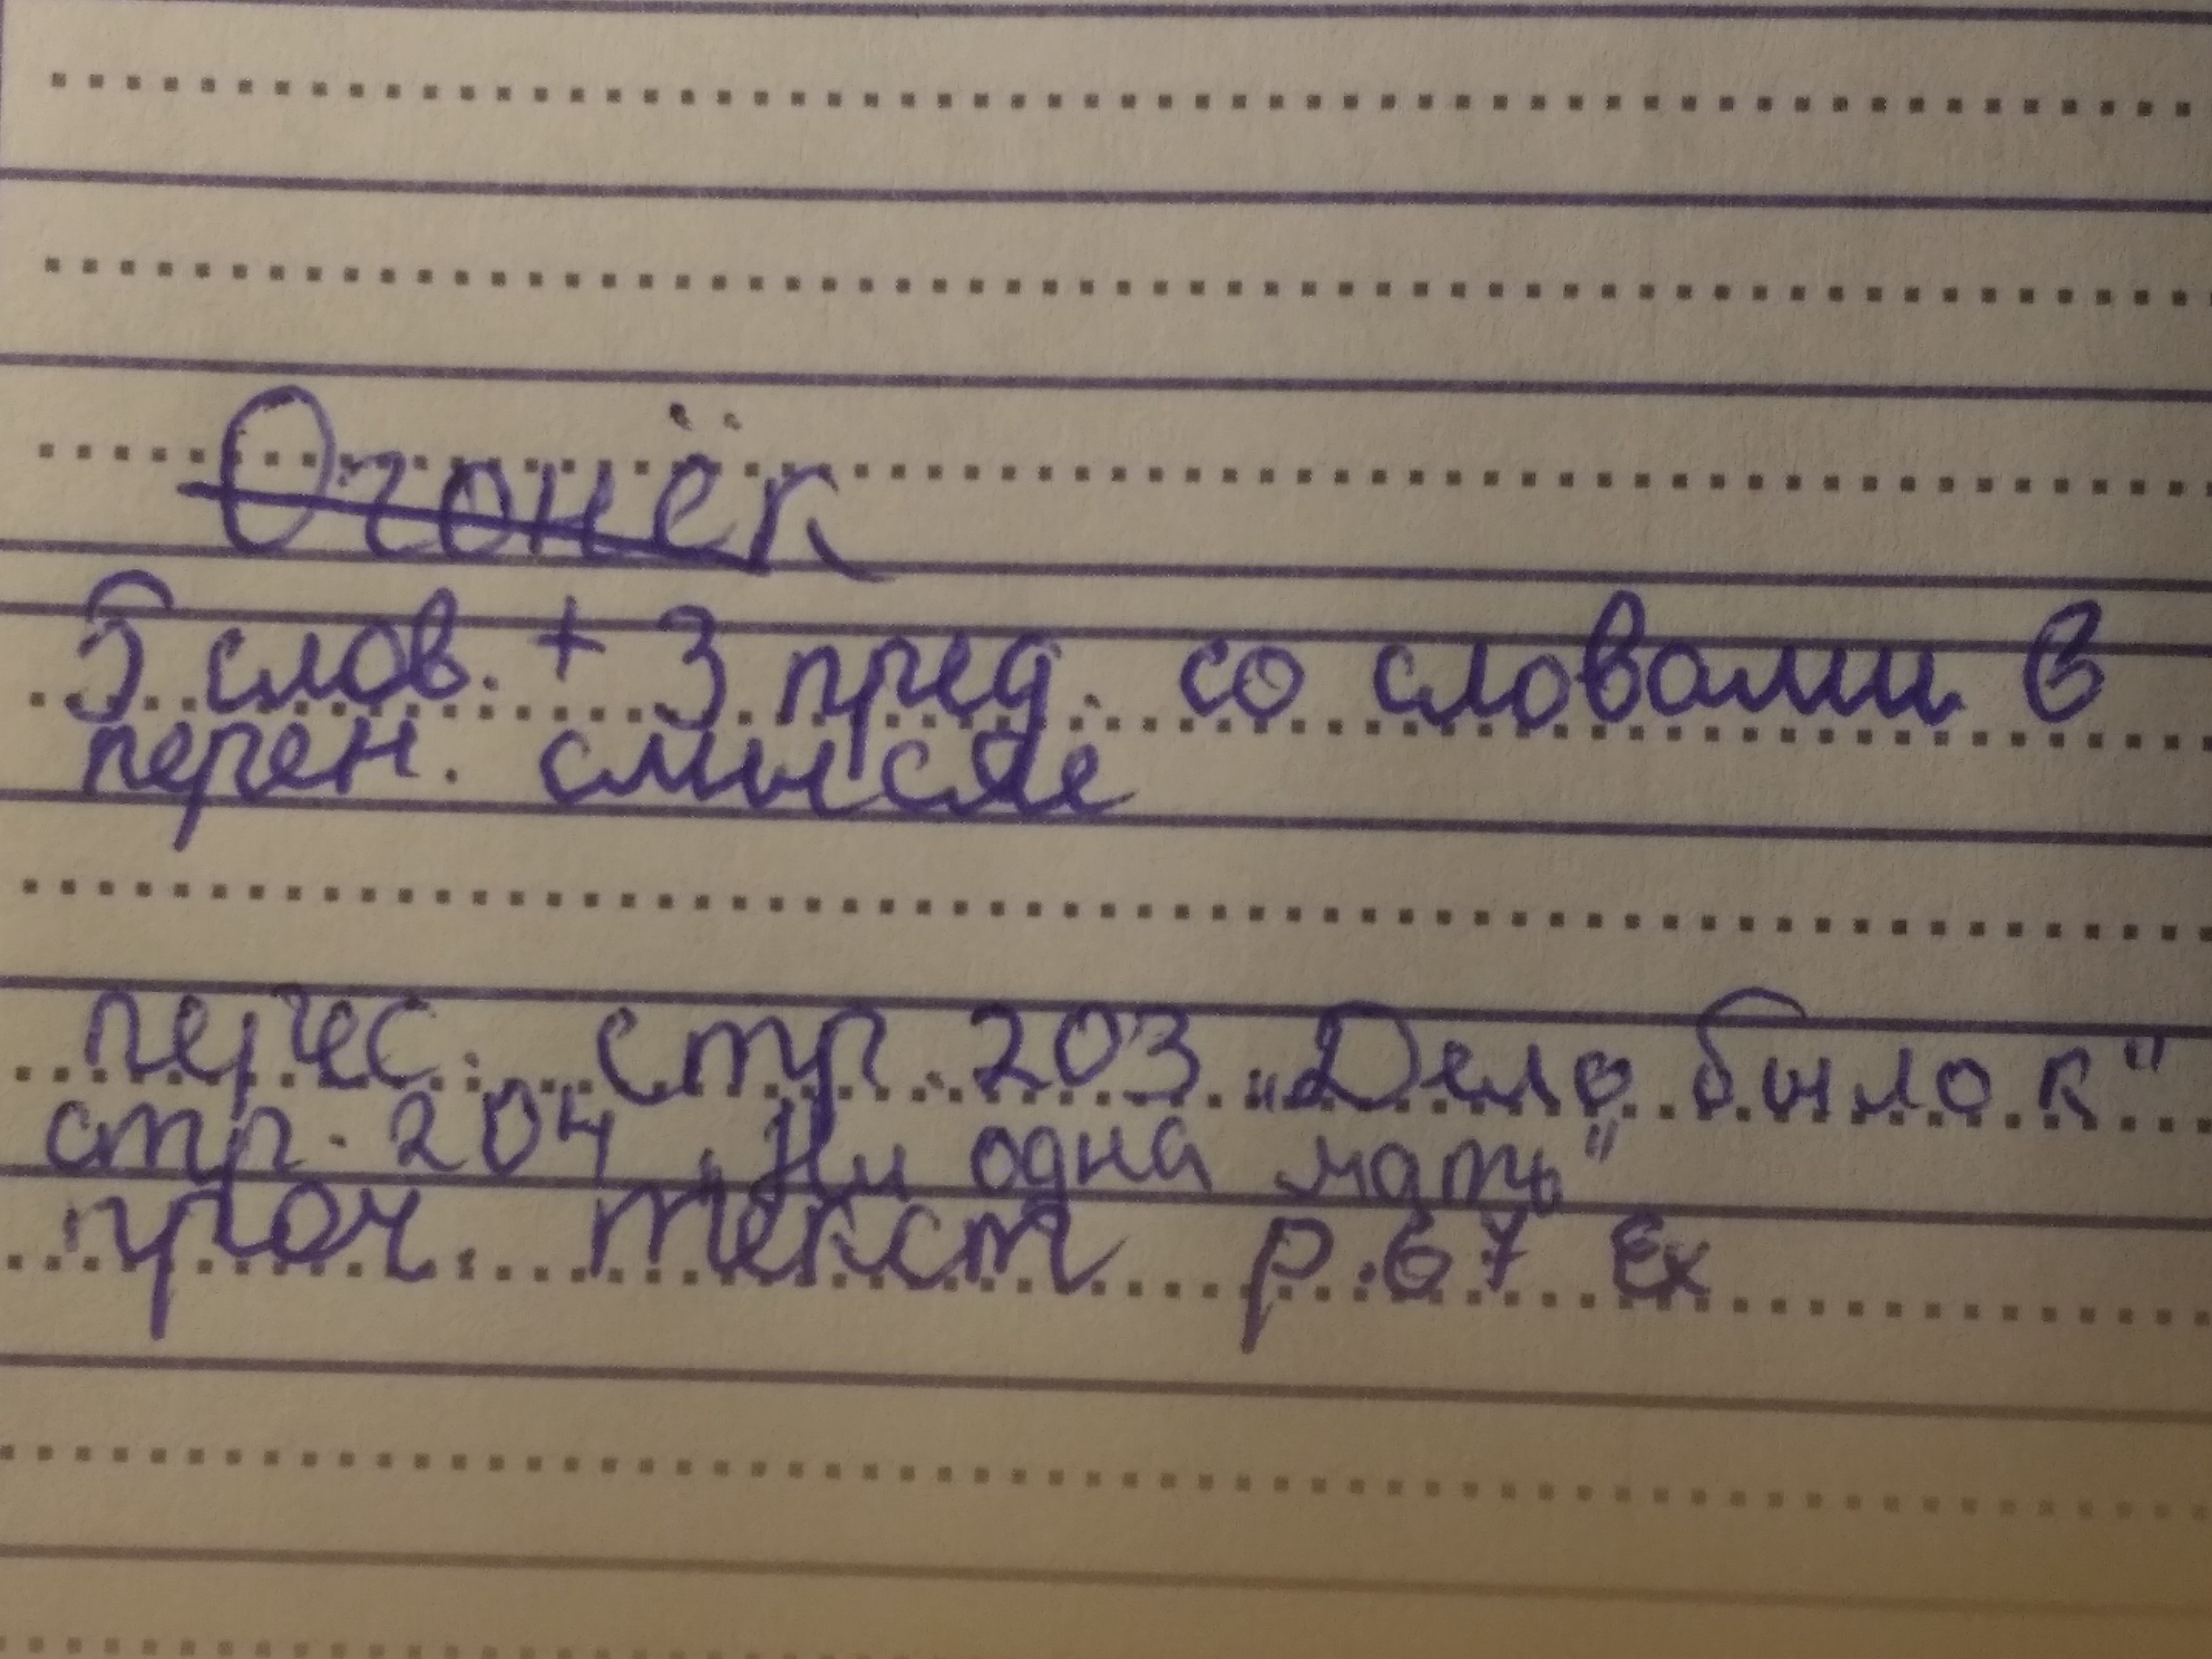 Огонёк
5 слов. + 3 пред. со словами в
перен. смысле
стр. 203 „Дело было к"
стр. 204 „Ни одна мать"
проч. текст p. 67 Ex